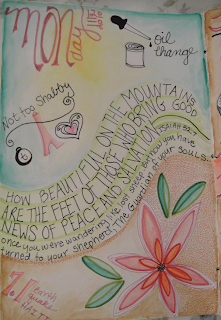 MON
day
oil
change
Not too Shabby
HOW BEAUTIFUL ON THE MOUNTAINS
ARE THE FEET OF THOSE WHO BRING GOOD
NEWS OF PEACE AND SALVATION
ISAIAH 52:7
once you were wandering like lost sheep. But now you have
turned to your shepherd, The Guardian of your souls.